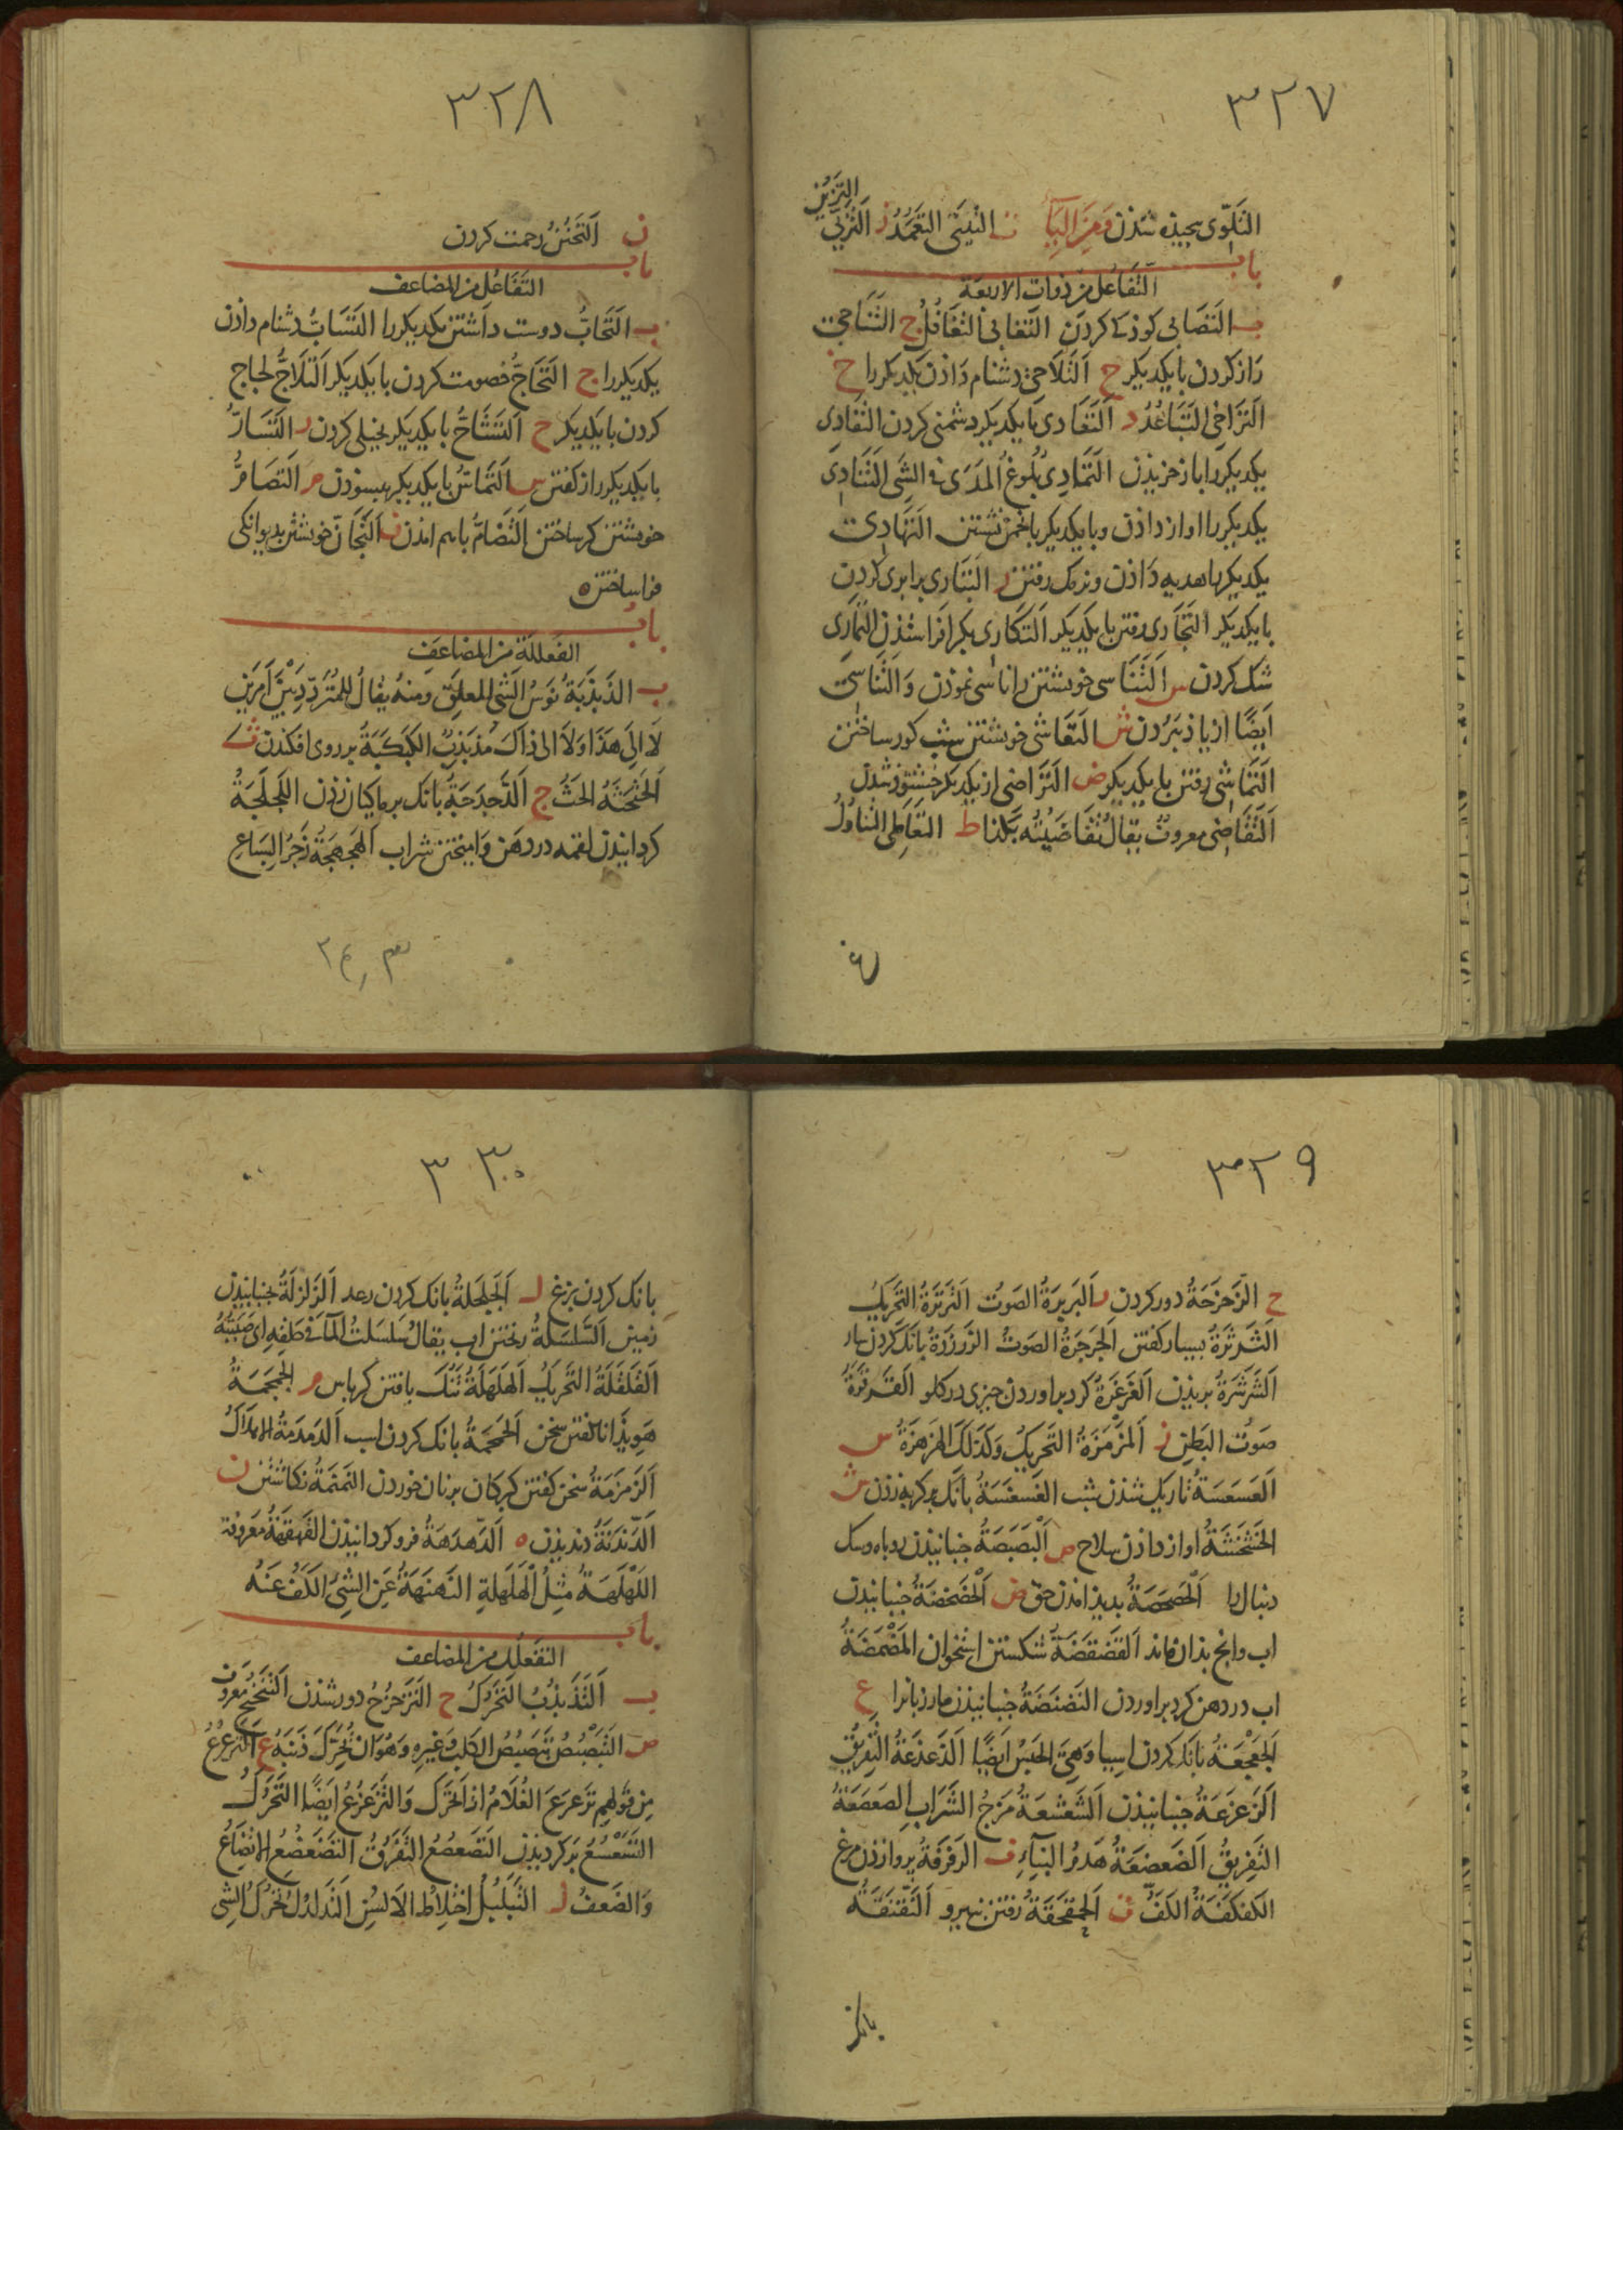 ٣٢٧
التزين
التلوى بجيذه شذن ومن اليآ ت التيتى التعمد ز التزيى
باب
التفاعل من ذوات الاربعة
ب التصابى كوذكى كردن التغابى التغافل ج التناجى
راز كردن با يكديكر ح التلاحى دشنام داذن يكديكر را خ
التراخى التباعد د التعادى با يكديكر دشمنى كردن التفادى
يكديكر را باز خريذن التمادى بلوغ المدى فى الشى التنادى
يكديكر را اواز داذن وبا يكديكر بانجمن نشستن التهادى
يكديكر را هديه داذن ونرمك رفتن ر التبارى برابرى كردن
با يكديكر التجارى رفتن با يكديكر التكارى بكرا فراستذن التمارى
شك كردن س التناسى خويشتن را ناسى نموذن والتناسى
ايضا از ياذ ببردن ش التعاشى خويشتن شب كور ساختن
التماشى رفتن با يكديكر ض التراضى از يكديكر خشنوذ شدن
التقاضى معروف يقال تقاضيته بكذا ط التعاطى التناول
٣٢٨
ن التحنن رحمت كردن
باب
التفاعل من المضاعف
ب التحاب دوست داشتن يكديكر را التساب دشنام داذن
يكديكر را ج التحاج خصومت كردن با يكديكر التلاج لجاج
كردن با يكديكر ح التشاح با يكديكر بخيلى كردن ر التسار
با يكديكر راز كفتن س التماس با يكديكر ببسوذن م التصام
خويشتن كر ساختن التضام باهم امذن ن التجان خويشتن بديوانكى
فرا ساختن ه
باب
الفعللة من المضاعف
ب الذبذبة نوس الشى المعلق ومنه يقال للمتردد بين امرين
لا الى هذا ولا الى ذاك مذبذب الكبكبة بر روى افكندن ث
الحثحثة الحث ج الدجدجة بانك بر ماكيان زذن اللجلجة
كردانيذن لقمه در دهن واميختن شراب الهجهجة زجر السباع
٣٢٩
ح الزحزحة دور كردن ر البربرة الصوت الترترة التحريك
الثرثرة بسيار كفتن الجرجرة الصوت الزرزرة بانك كردن سار
الشرشرة بريذن الغرغرة كرد براوردن چيزى در كلو القرقرة
صوت البطن ز المزمزة التحريك وكذلك الهزهزة س
العسعسة تاريك شذن شب الغسغسة بانك بر كربه زذن ش
الخشخشة اواز داذن سلاح ص البصبصة جنبانيذن روباه وسك
دنبال را الحصحصة بديذ امذن حق ض الخضخضة جنبانيذن
اب وانچ بذان ماند القضقضة شكستن استخوان المضمضة
اب در دهن كرد براوردن النضنضة جنبانيذن مار زبانرا ع
الجعجعة بانك كردن اسيا وهى الحبس ايضا الذعذعة التفريق
الزعزعة جنبانيذن الشعشعة مزج الشراب الصعصعة
التفريق الضعضعة هدم البنآء ف الرفرفة پرواز زذن مرغ
الكفكفة الكف ق الحقحقة رفتن بنيرو النقنقة
بانك
٣٣٠
بانك كردن بزغ ل الجلجلة بانك كردن رعد الزلزلة جنبانيذن
زمين السلسلة ريختن اب يقال سلسلت المآ فى حلقه اى صببته
القلقلة التحريك الهلهلة تنك بافتن كرباس م الجمجمة
هويذا نا كفتن سخن الحمحمة بانك كردن اسب الدمدمة الاهلاك
الزمزمة سخن كفتن كبركان بر نان خوردن النمنمة نكاشتن ن
الدندنة دنديذن ه الدهدهة فرو كردانيذن القهقهة معروفة
اللهلهة مثل الهلهلة النهنهة عن الشئ الكف عنه
باب
التفعلل من المضاعف
ب التذبذب التحرك ح التزحزح دور شذن التنحنح معروف
ص التبصبص تبصبص الكلب وغيره وهو ان يحرك ذنبه ع الترعرع
من قولهم ترعرع الغلام اذا تحرك والتزعزع ايضا التحرك
التسعسع پير كرديذن التصعصع التفرق التضعضع الاتضاع
والضعف ل التبلبل اختلاط الالسن التدلدل تحرك الشى